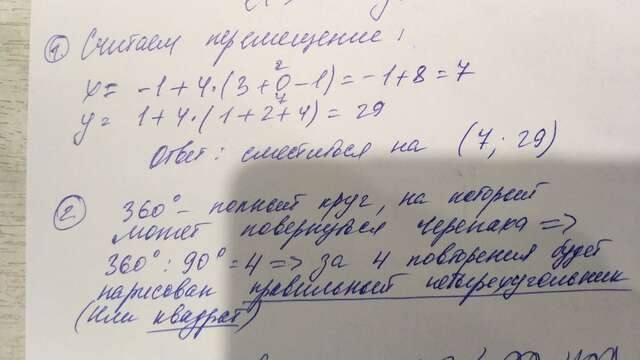 ① Считаем перемещение:
x = -1+4·(3+0-1)= -1+8=7
2
y = 1+4·(1+2+4) = 29
7
Ответ: сместился на (7; 29)
② 360° - полный круг, на который
может повернуться черепаха =>
360° : 90° = 4 => за 4 повторения будет
нарисован правильный четырехугольник
(или квадрат)